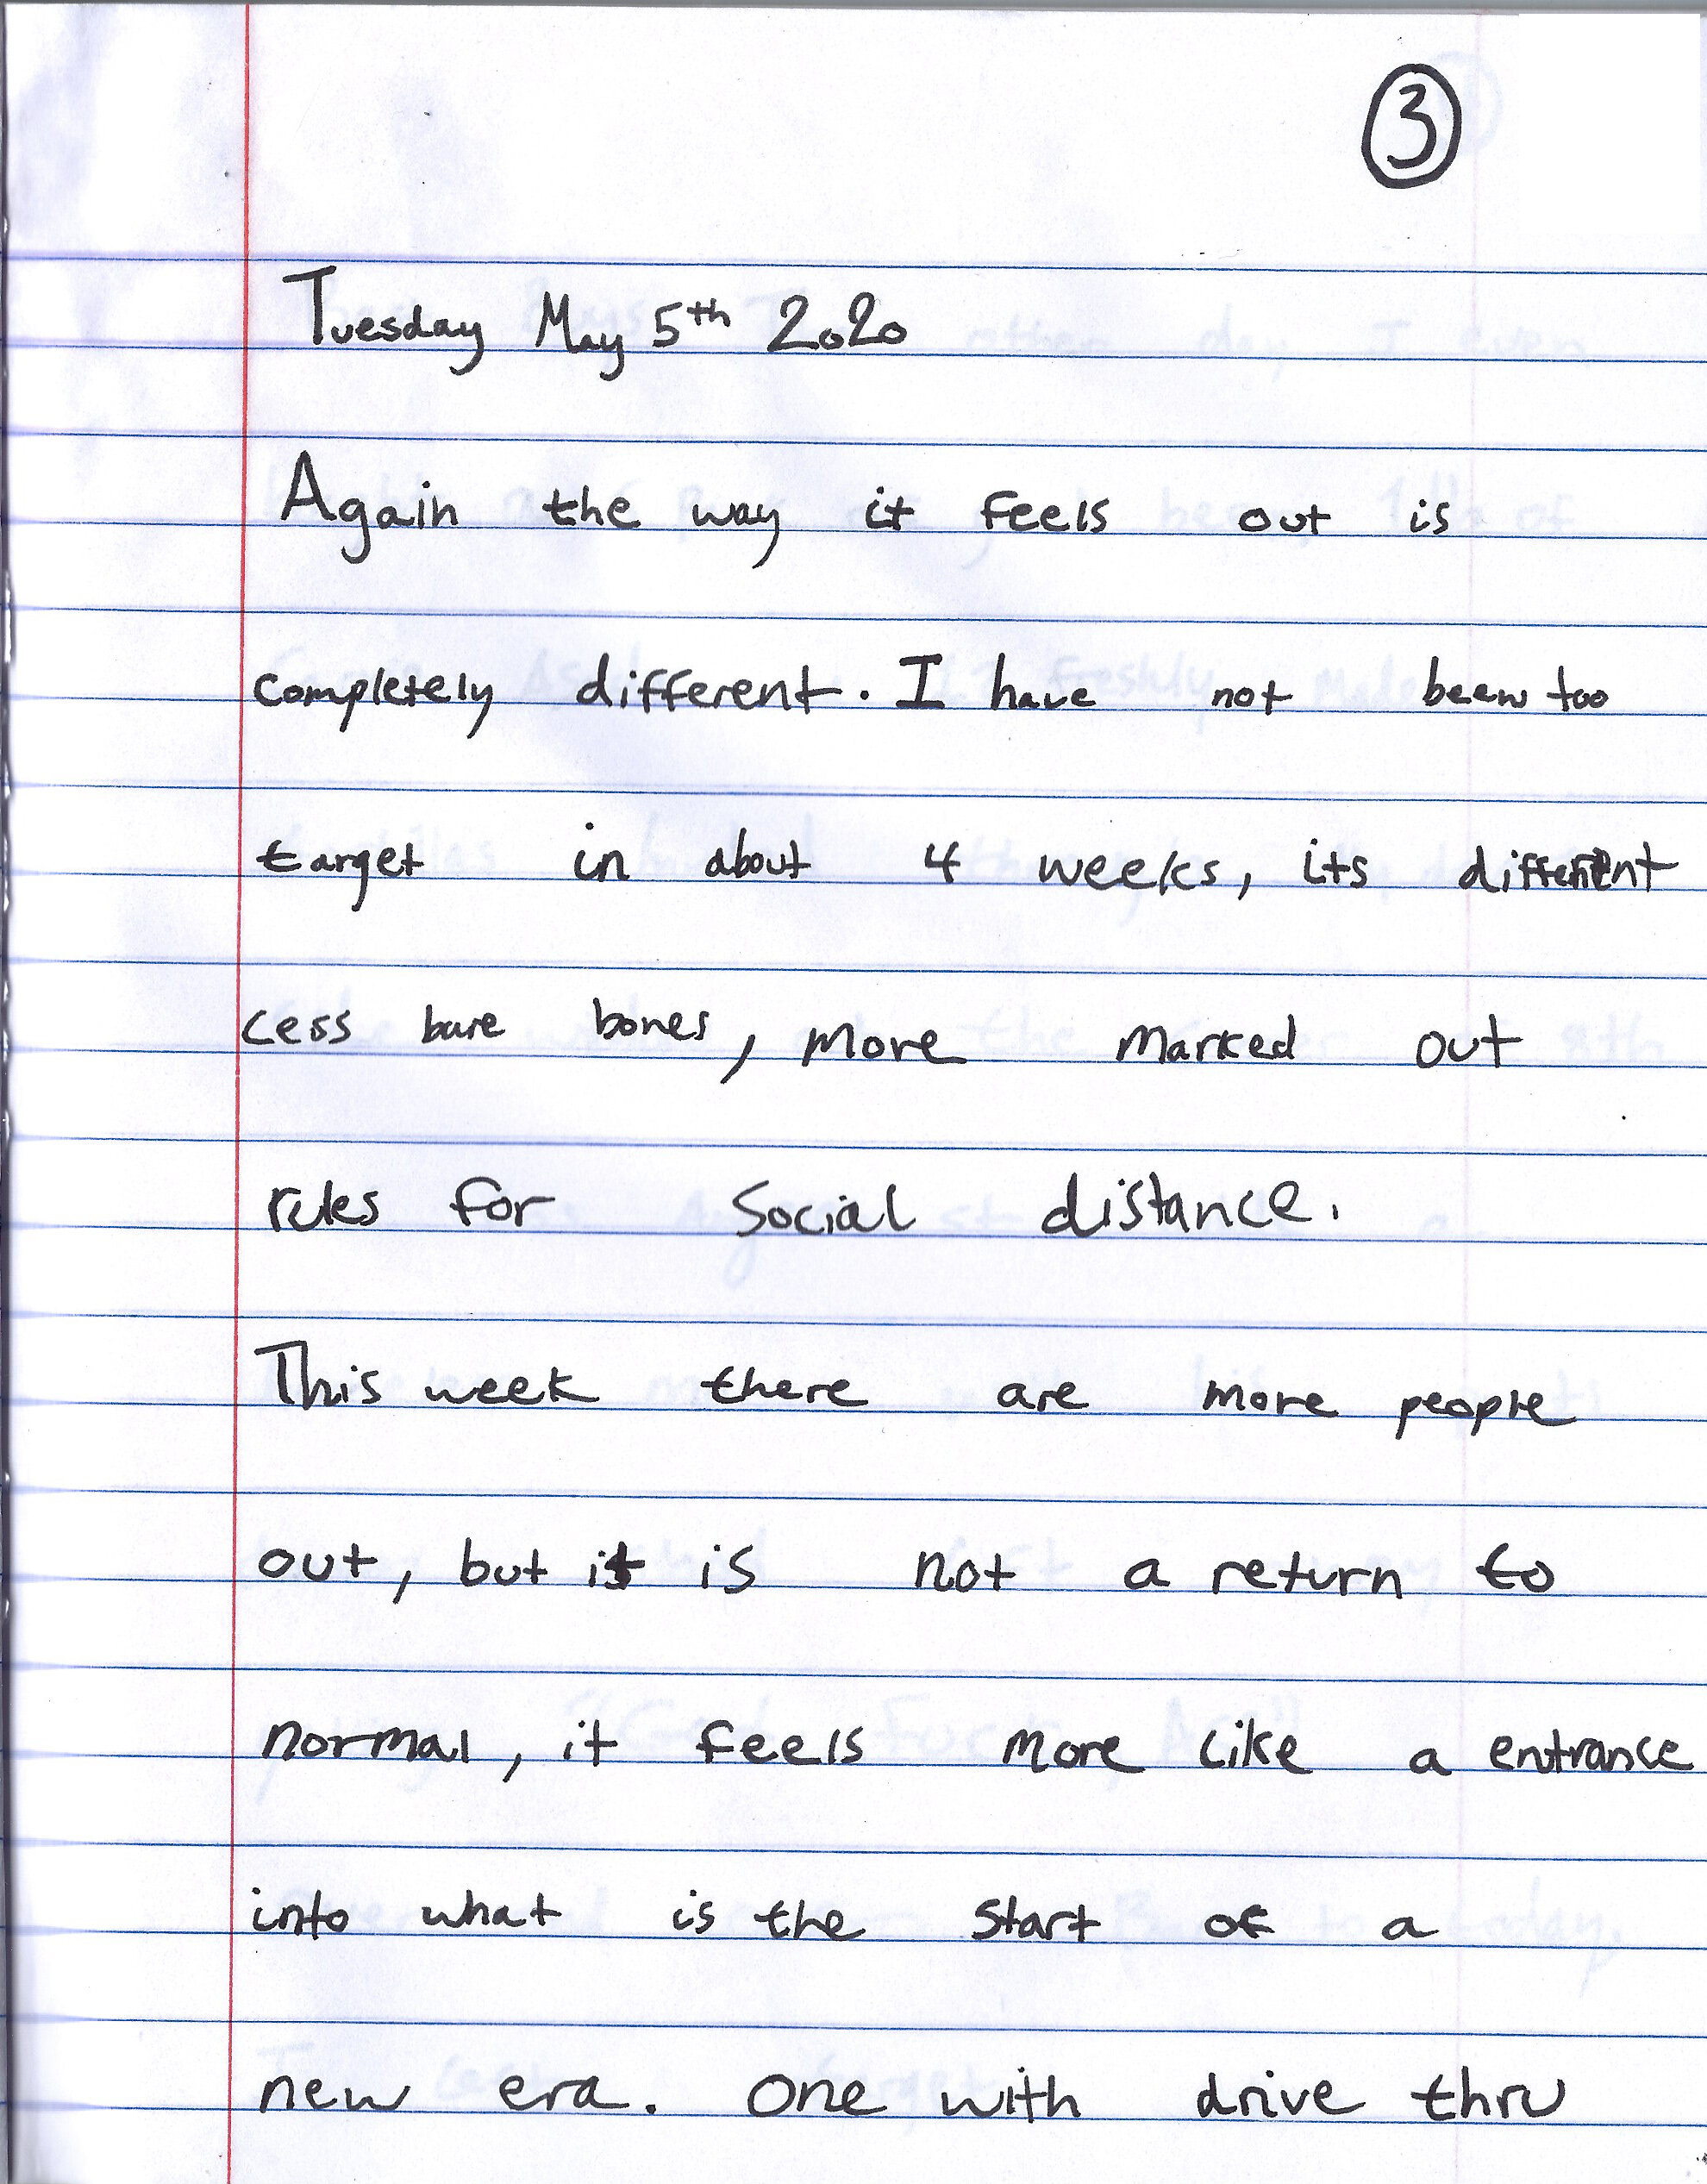 3
Tuesday May 5th 2020
Again the way it feels out is
completely different. I have not been too
target in about 4 weeks, its different
Less bare bones, more marked out
rules for social distance.
This week there are more people
out, but it is not a return to
normal, it feels more like a entrance
into what is the start of a
new era. One with drive thru